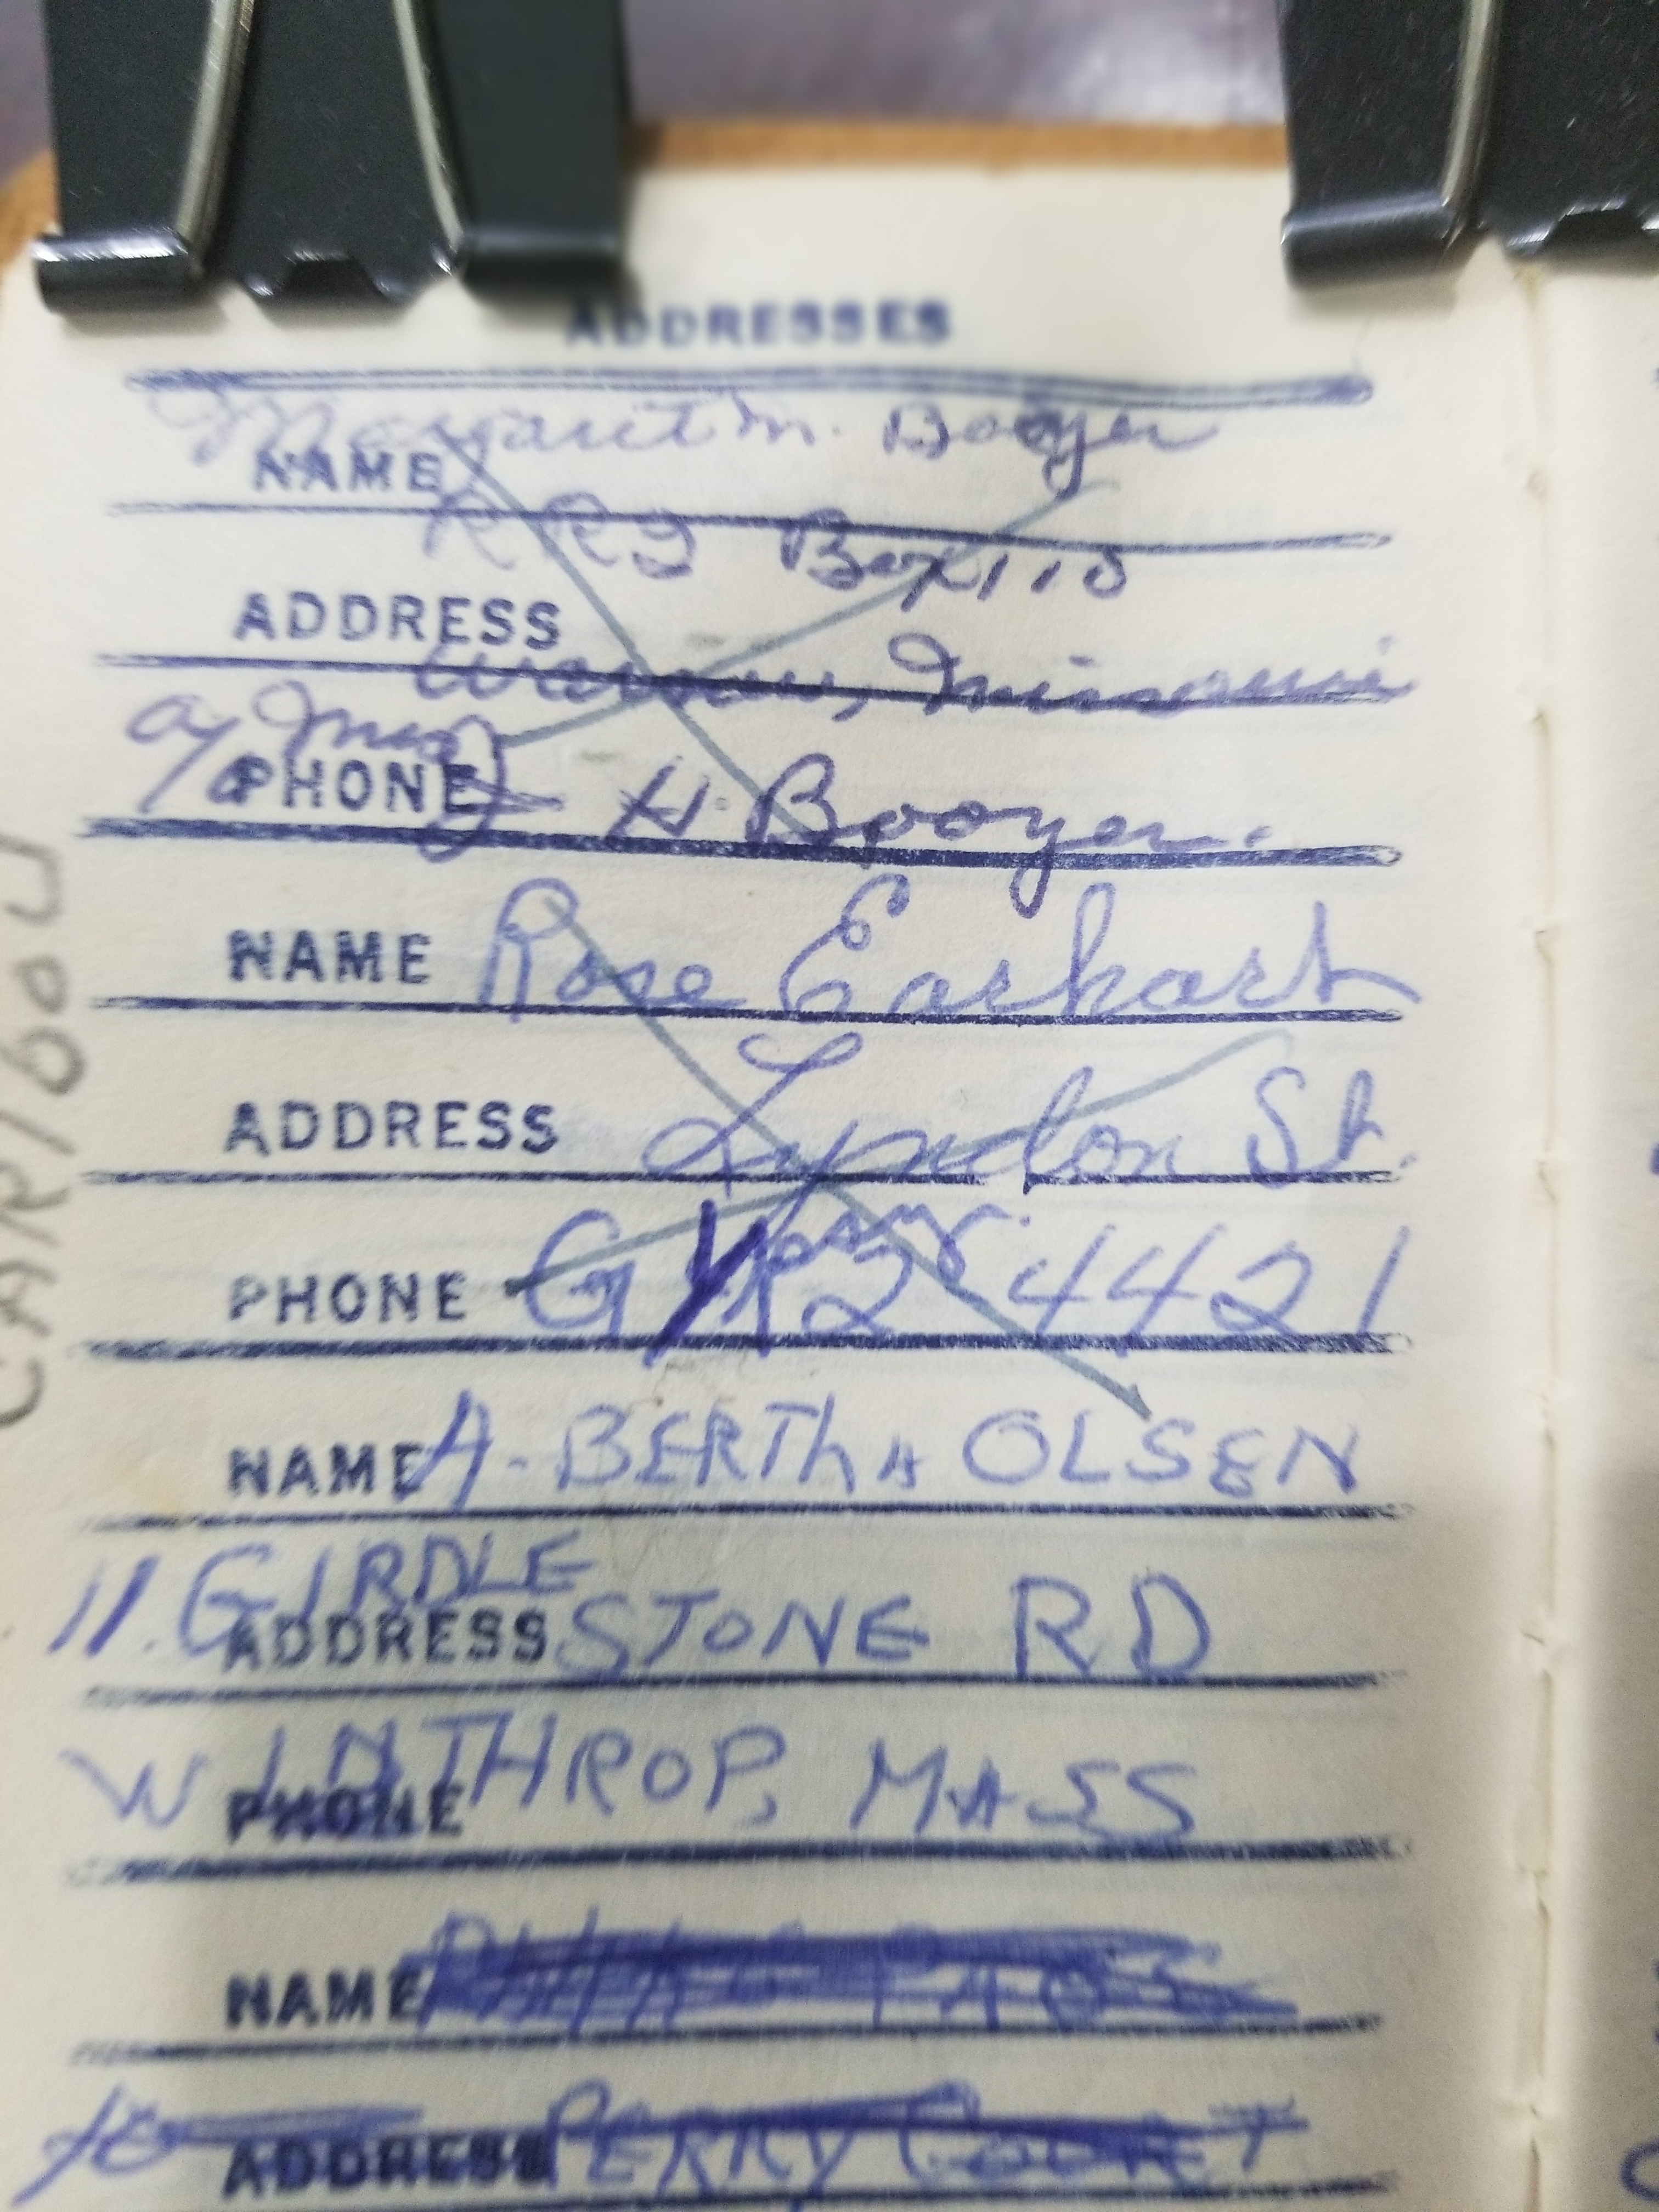 ADDRESSES
Margaret M. Booyer
NAME
RR2 Box 110
ADDRESS
Warsaw, Missouri
c/o Mrs
PHONE J H. Booyer.
NAME Rose Earhart
ADDRESS Lyndon St.
PHONE GY 2 4421
NAME A. BERTHA OLSEN
11. GIRDLE
ADDRESS STONE RD
WINTHROP, MASS
PHONE
NAME
ADDRESS PERRY COURT
CARIBOU